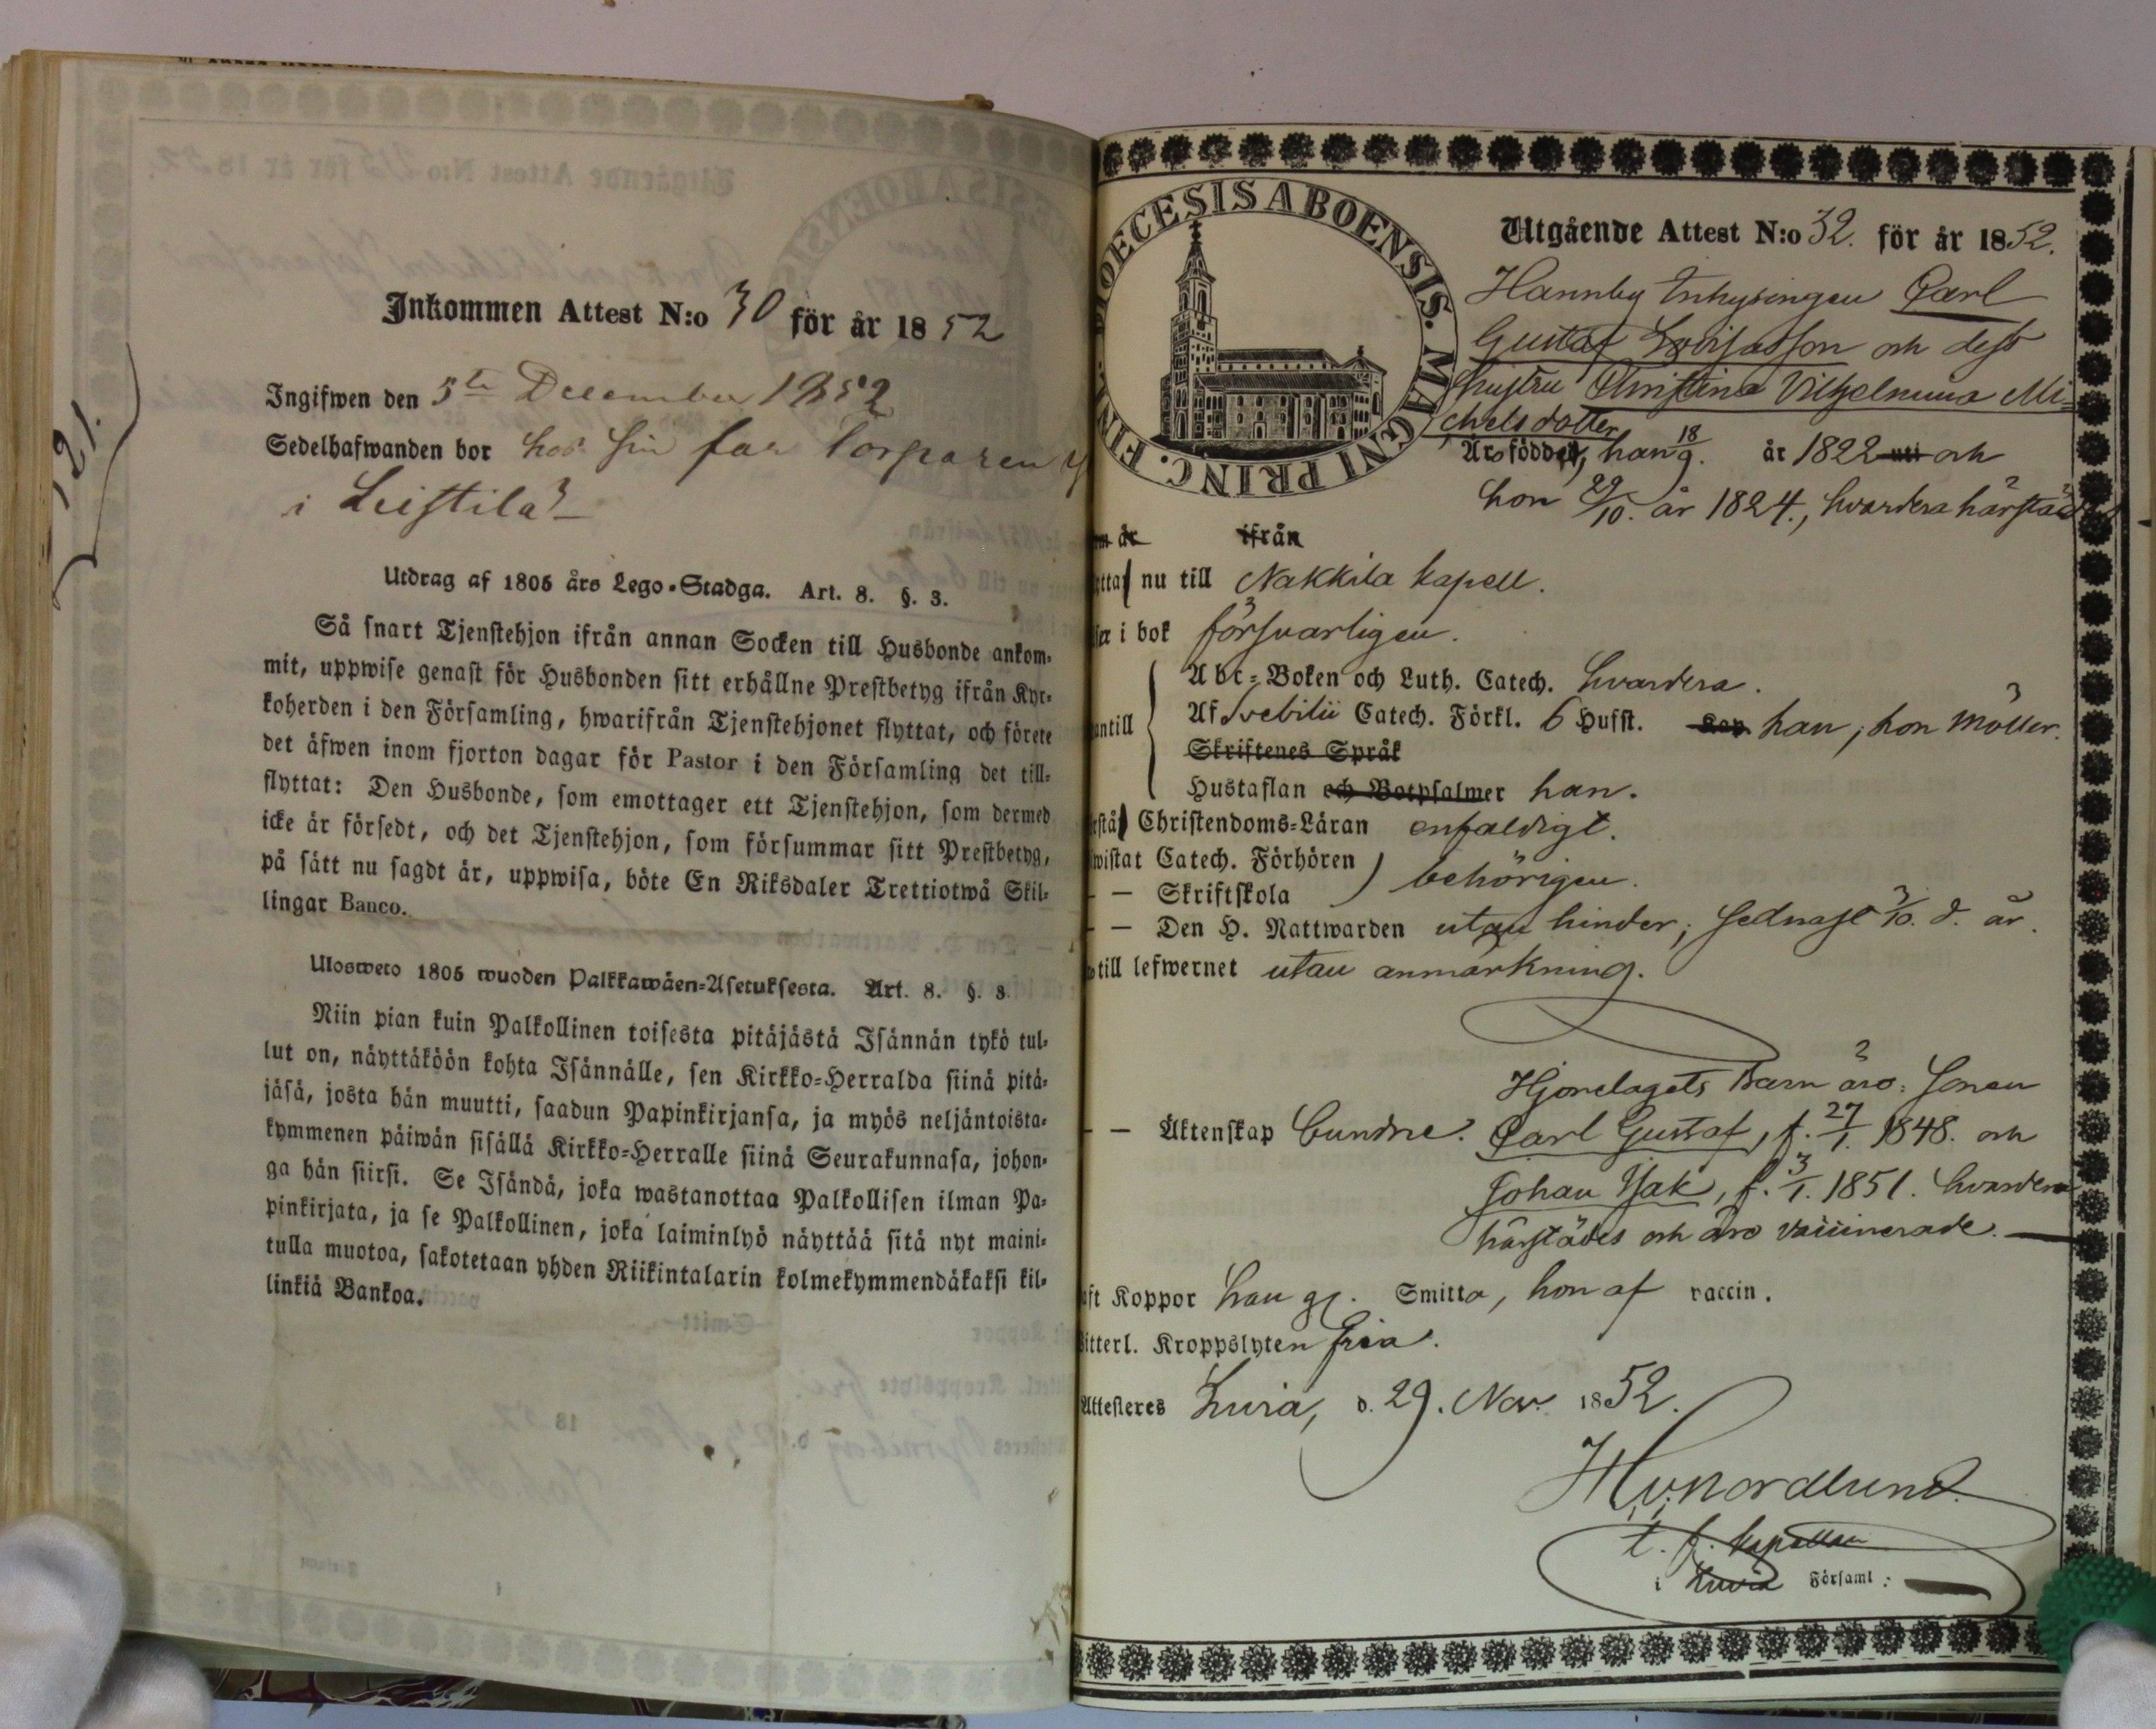 121.
Inkommen Attest N:o 30 för år 1852
Ingifwen den 5te December 1852
Sedelhafwanden bor hos sin far Torparen
i Leistilä
Utdrag af 1805 års Lego-Stadga. Art. 8. §. 3.
Så snart Tjenstehjon ifrån annan Socken till Husbonde ankom-
mit, uppwise genast för Husbonden sitt erhållne Prestbetyg ifrån Kyr-
koherden i den Församling, hwarifrån Tjenstehjonet flyttat, och förete
det äfwen inom fjorton dagar för Pastor i den Församling det till-
flyttat: Den Husbonde, som emottager ett Tjenstehjon, som dermed
icke är försedt, och det Tjenstehjon, som försummar sitt Prestbetyg,
på sätt nu sagdt är, uppwisa, böte En Riksdaler Trettiotwå Skil-
lingar Banco.
Ulosweto 1805 wuoden Palkkawäen-Asetuksesta. Art. 8. §. 3.
Niin pian kuin Palkollinen toisesta pitäjästä Isännän tykö tul-
lut on, näyttäköön kohta Isännälle, sen Kirkko-Herralda siinä pitä-
jäsä, josta hän muutti, saadun Papinkirjansa, ja myös neljäntoista-
kymmenen päiwän sisällä Kirkko-Herralle siinä Seurakunnasa, johon-
ga hän siirsi. Se Isändä, joka wastanottaa Palkollisen ilman Pa-
pinkirjata, ja se Palkollinen, joka laiminlyö näyttää sitä nyt maini-
tulla muotoa, sakotetaan yhden Riikintalarin kolmekymmendäkaksi kil-
linkiä Bankoa.
DIOECESIS ABOENSIS. MAGNI PRINC. FINL.
Utgående Attest N:o 32. för år 1852.
Hannby Inhysingen Carl
Gustaf Lovisasson och dess
hustru Christina Vilhelmina Mi-
chelsdotter
Äro födde, han 18/9. år 1822 uti och
hon 29/10. år 1824., hvardera härstädes
är ifrån
nu till Nakkila kapell.
i bok försvarligen.
Abc-Boken och Luth. Catech. hvardera.
antill Af Svebilii Catech. Förkl. 6 Hufst. Kap han, hon Möller.
Skriftenes Språk
Hustaflan och Botpsalmer han.
Christendoms-Läran enfaldigt.
wistat Catech. Förhören
— Skriftskola behörigen.
— Den H. Nattwarden utan hinder; sednast 3/10. d. år.
till lefwernet utan anmärkning.
Hjonelagets Barn äro: Sonen
— Äktenskap bundne. Carl Gustaf, f. 27/1. 1848. och
Johan Isak, f. 3/1. 1851. hvardera
härstädes och äro vaccinerade. —
Koppor han gg. Smitta, hon af vaccin.
Kroppslyten fria.
Attesteres Luvia, d. 29. Nov. 1852.
Nordlund
t. f. kapellan
i Luvia Församl: